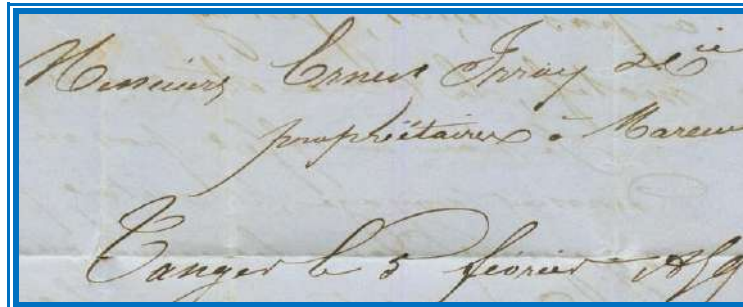 Messieurs Ernest Irroy & Cie
propriétaires à Mareui
Tanger le 5 février 18